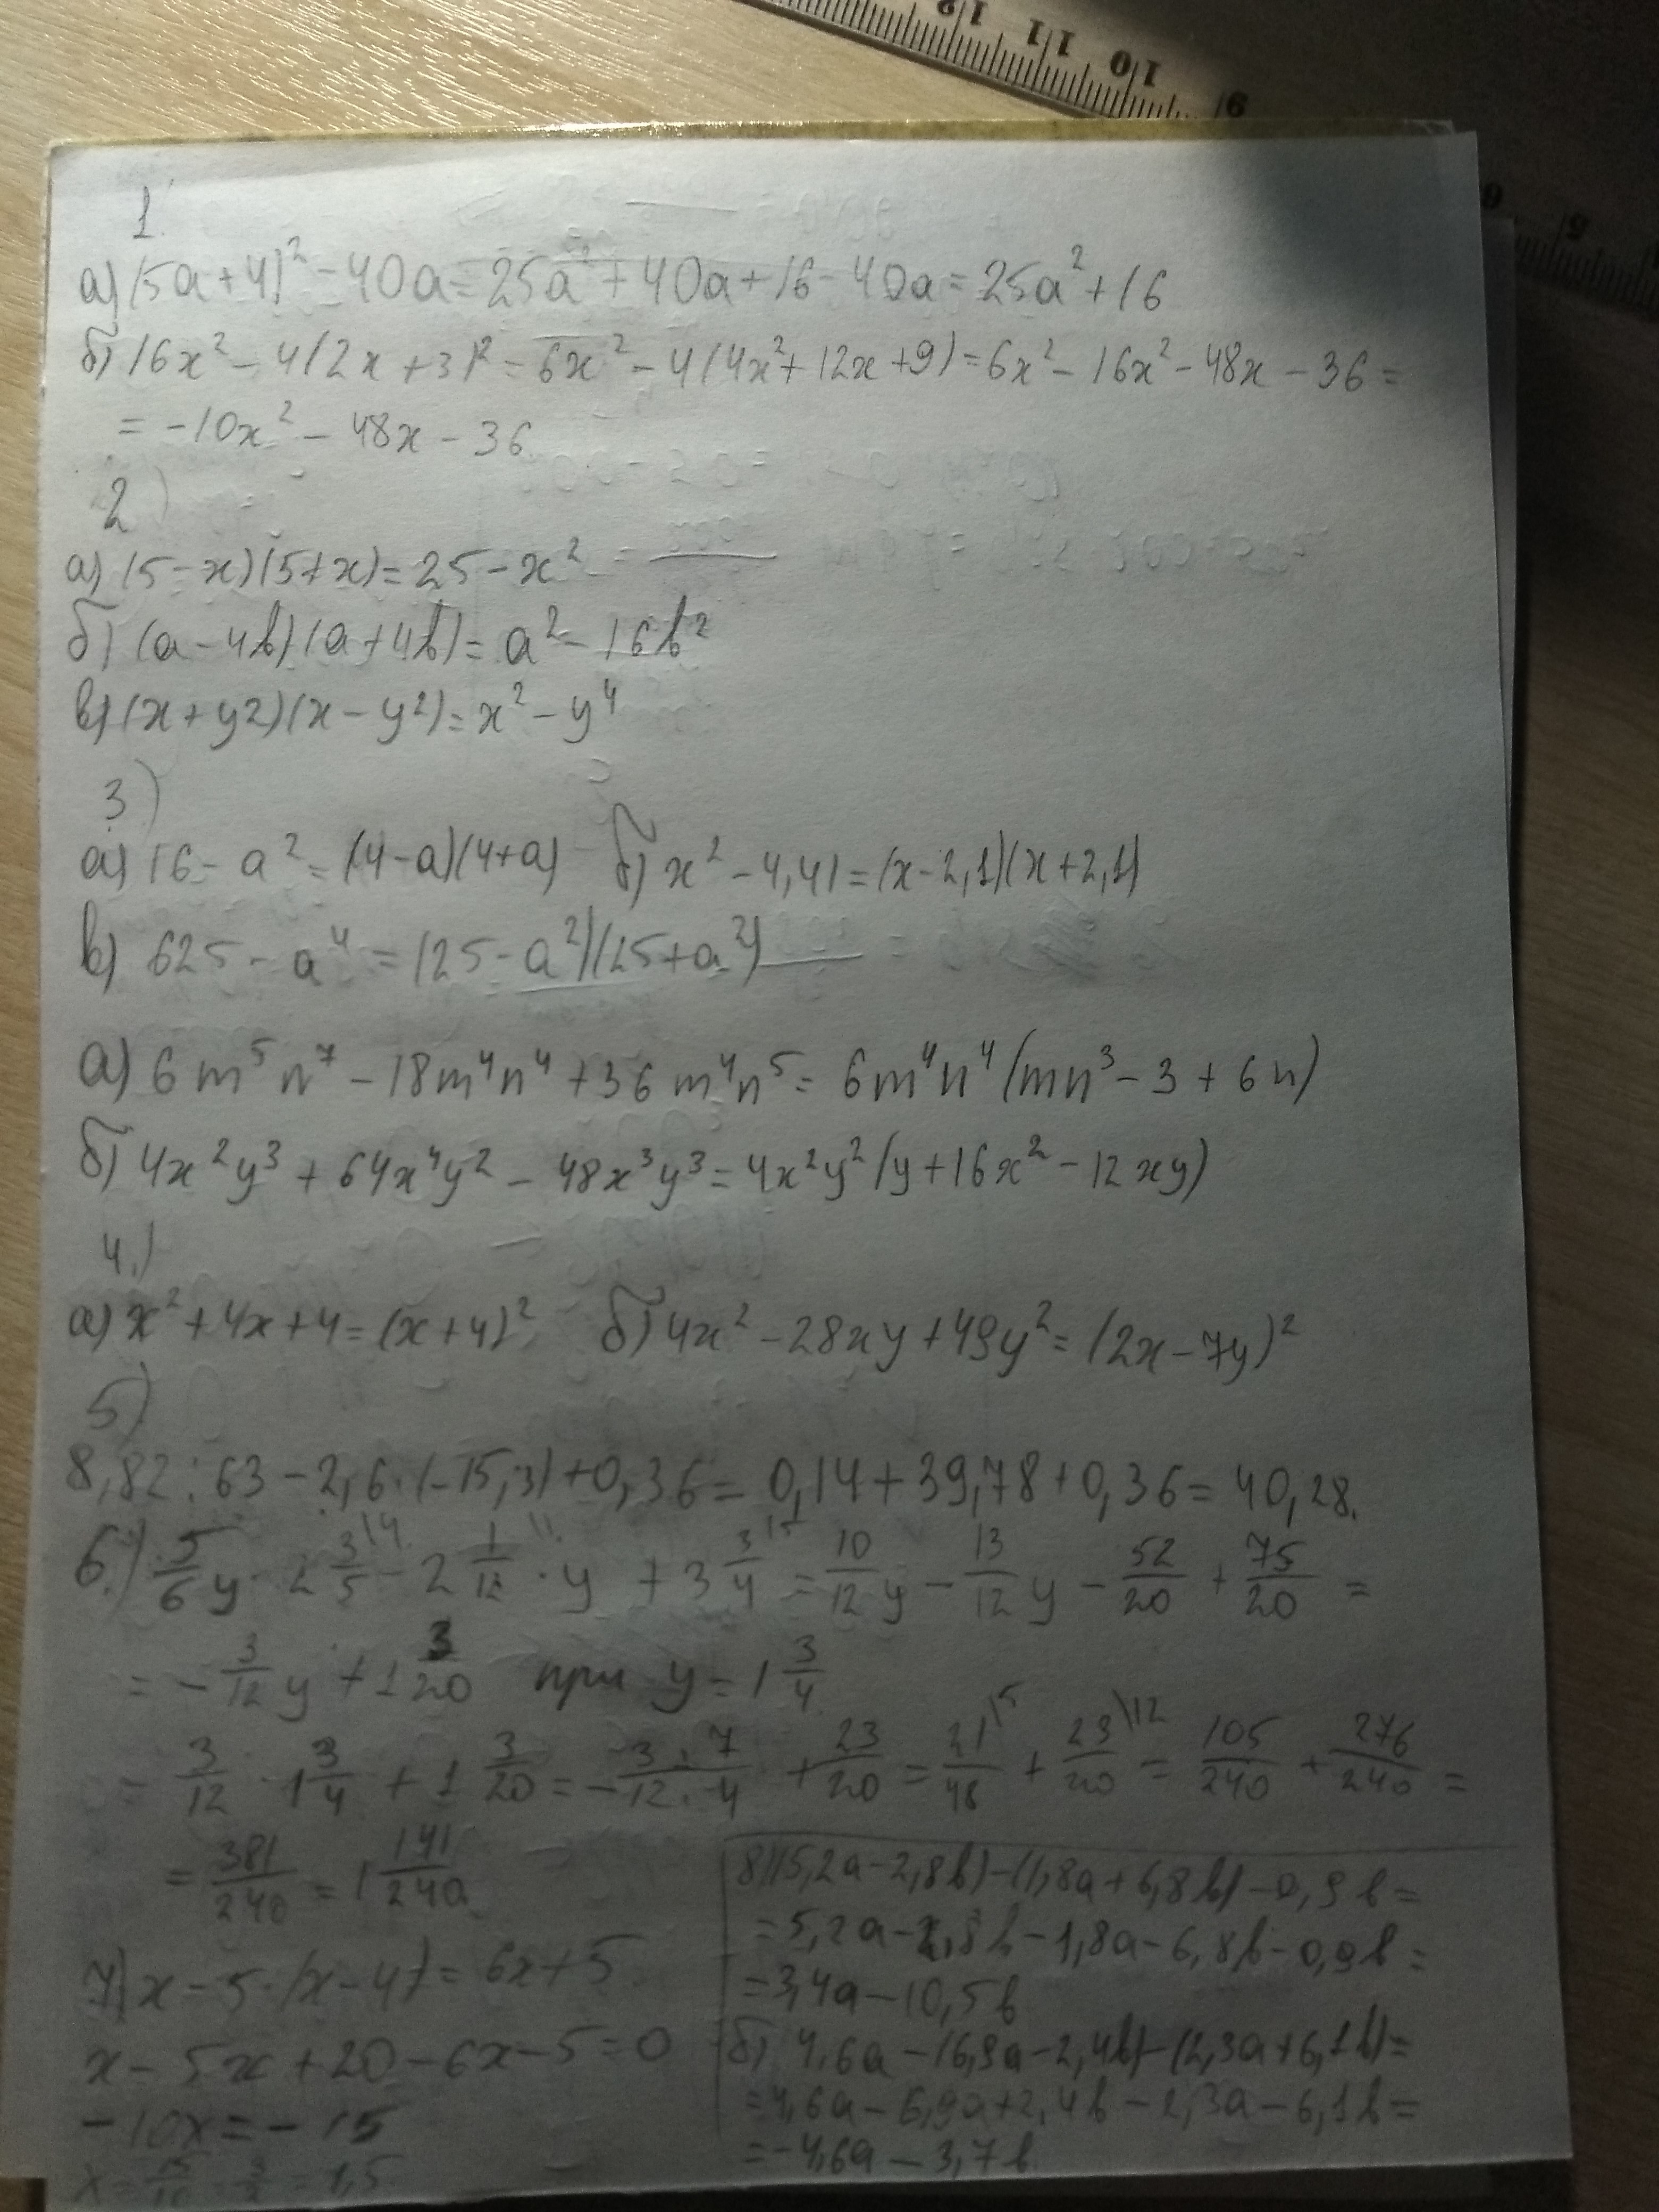 12 11 10 9
6 5
1.
а) (5a+4)² - 40a = 25a² + 40a + 16 - 40a = 25a² + 16
б) 16x² - 4(2x + 3)² = 6x² - 4(4x² + 12x + 9) = 6x² - 16x² - 48x - 36 =
= -10x² - 48x - 36
2)
а) (5-x)(5+x) = 25 - x²
б) (a - 4b)(a + 4b) = a² - 16b²
в) (x + y2)(x - y²) = x² - y⁴
3)
а) 16 - a² = (4-a)(4+a) б) x² - 4,41 = (x-2,1)(x+2,1)
в) 625 - a⁴ = (25 - a²)(25 + a²)
а) 6m⁵n⁷ - 18m⁴n⁴ + 36m⁴n⁵ = 6m⁴n⁴(mn³ - 3 + 6n)
б) 4x²y³ + 64x⁴y² - 48x³y³ = 4x²y²(y + 16x² - 12xy)
4.)
а) x² + 4x + 4 = (x+4)² б) 4x² - 28xy + 49y² = (2x - 7y)²
5)
8,82 : 63 - 2,6 · (-15,3) + 0,36 = 0,14 + 39,78 + 0,36 = 40,28.
6.) 5/6 y - 2 3/5 \4 - 2 1/12 · y + 3 3/4 \5 = 10/12 y - 13/12 y - 52/20 + 75/20 =
= - 3/12 y + 1 3/20 при y = 1 3/4
= 3/12 · 1 3/4 + 1 3/20 = - 3·7/12·4 + 23/20 = 21/48 \5 + 23/20 \12 = 105/240 + 276/240 =
= 381/240 = 1 141/240
7) x - 5·(x - 4) = 6x + 5
x - 5x + 20 - 6x - 5 = 0
-10x = -15
x = 15/10 = 3/2 = 1,5
8) (5,2a - 2,8b) - (1,8a + 6,8b) - 0,9b =
= 5,2a - 2,8b - 1,8a - 6,8b - 0,9b =
= 3,4a - 10,5b
б) 4,6a - (6,9a - 2,4b) - (2,3a + 6,1b) =
= 4,6a - 6,9a + 2,4b - 2,3a - 6,1b =
= -4,6a - 3,7b